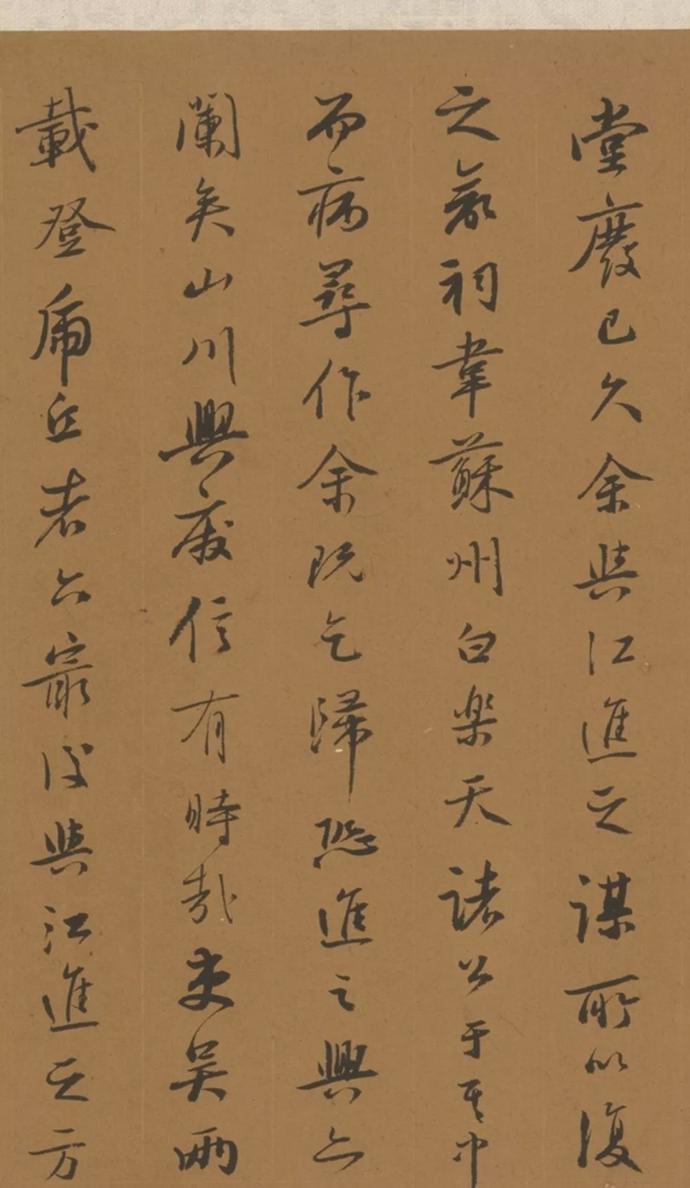 堂廢已久余與江進之謀所以復
之欲祠韋蘇州白樂天諸公于其中
而病尋作余既乞歸恐進之興亦
闌矣山川興廢信有時哉吏吳兩
載登虎丘者六最後與江進之方